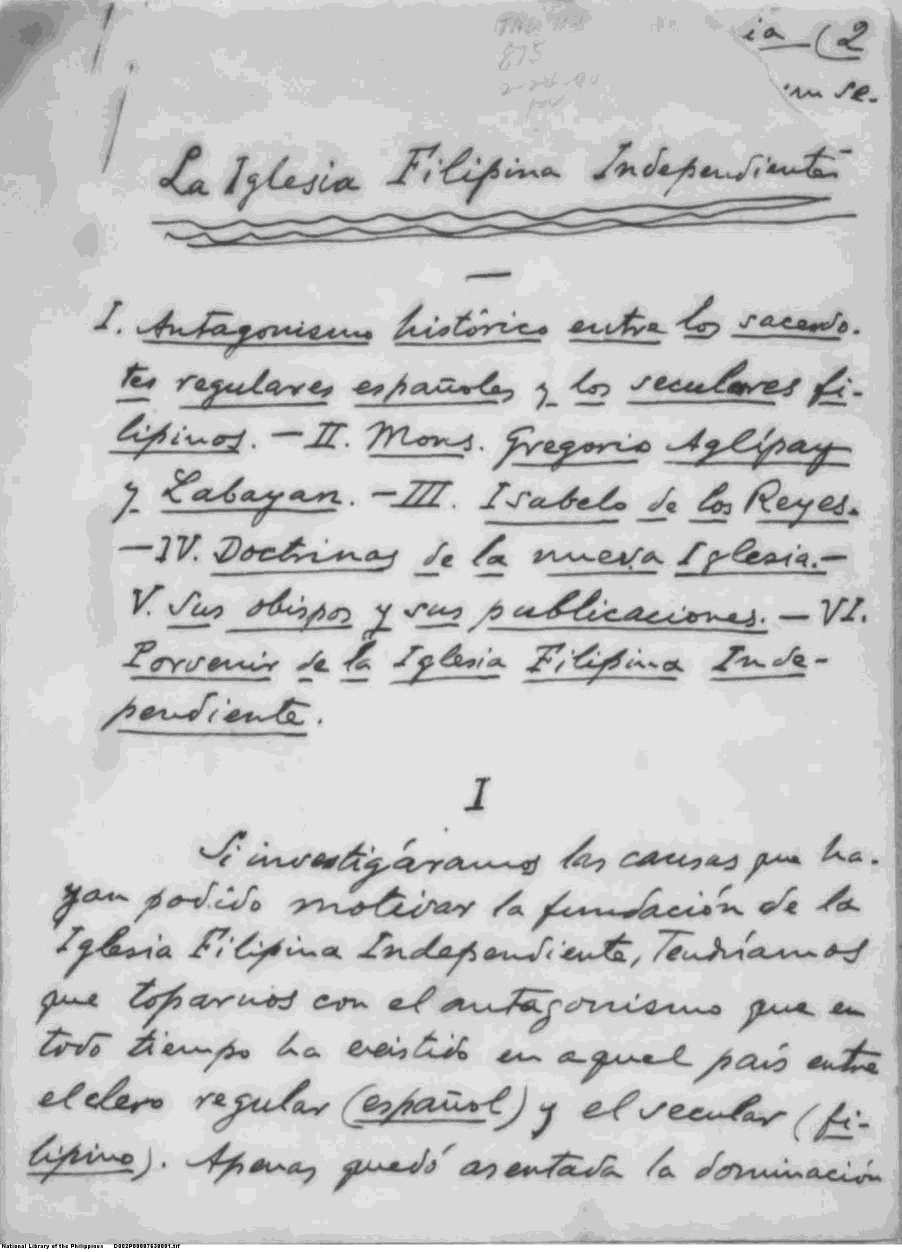 ia (2
un se-
La Iglesia Filipina Independiente
I. Antagonismo histórico entre los sacerdo-
tes regulares españoles y los seculares fi-
lipinos. — II. Mons. Gregorio Aglípay
y Labayan. — III. Isabelo de los Reyes.
— IV. Doctrinas de la nueva Iglesia. —
V. Sus obispos y sus publicaciones. — VI.
Porvenir de la Iglesia Filipina Inde-
pendiente.
I
Si investigáramos las causas que ha-
yan podido motivar la fundación de la
Iglesia Filipina Independiente, tendríamos
que toparnos con el antagonismo que en
todo tiempo ha existido en aquel país entre
el clero regular (español) y el secular (fi-
lipino). Apenas quedó asentada la dominación
National Library of the Philippines D002P00007630001.tif